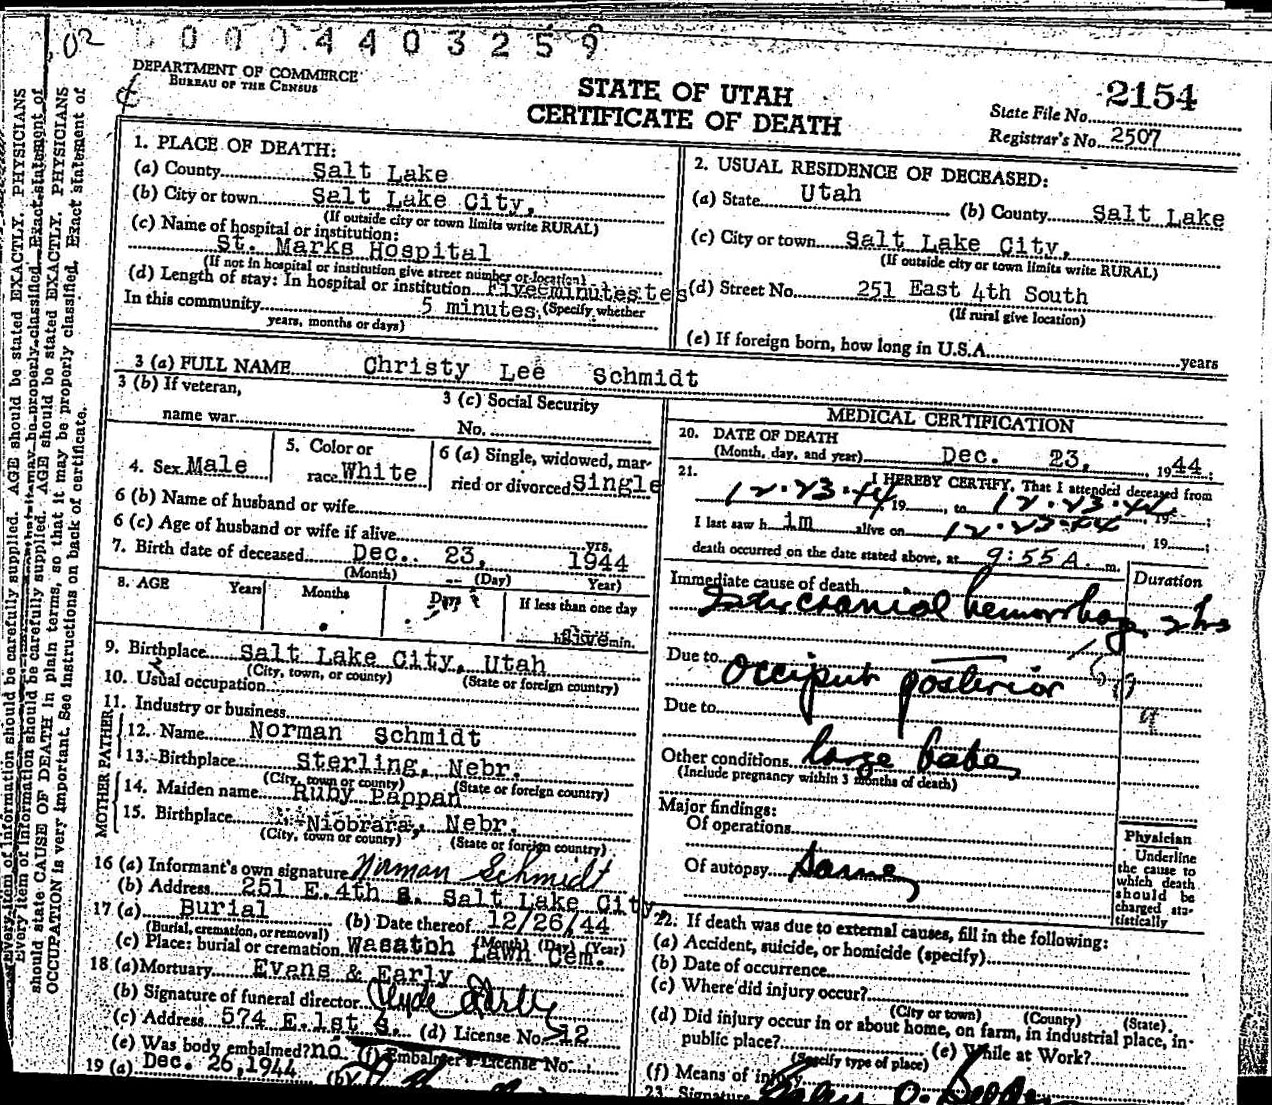 0 0 0 4 4 0 3 2 5 9
DEPARTMENT OF COMMERCE
BUREAU OF THE CENSUS
STATE OF UTAH
CERTIFICATE OF DEATH
State File No. 2154
Registrar's No. 2507
1. PLACE OF DEATH:
(a) County Salt Lake
(b) City or town Salt Lake City,
(If outside city or town limits write RURAL)
(c) Name of hospital or institution:
St. Marks Hospital
(If not in hospital or institution give street number or location)
(d) Length of stay: In hospital or institution
(Specify whether
In this community 5 minutes
years, months or days)
2. USUAL RESIDENCE OF DECEASED:
(a) State Utah (b) County Salt Lake
(c) City or town Salt Lake City,
(If outside city or town limits write RURAL)
(d) Street No. 251 East 4th South
(If rural give location)
(e) If foreign born, how long in U.S.A. years
3 (a) FULL NAME Christy Lee Schmidt
3 (b) If veteran,
name war
3 (c) Social Security
No.
4. Sex Male
5. Color or
race White
6 (a) Single, widowed, mar-
ried or divorced Single
6 (b) Name of husband or wife
6 (c) Age of husband or wife if alive yrs.
7. Birth date of deceased Dec. 23, 1944
(Month) (Day) Year)
8. AGE Years Months Days If less than one day
five min.
9. Birthplace Salt Lake City, Utah
(City, town, or county) (State or foreign country)
10. Usual occupation
11. Industry or business
FATHER
12. Name Norman Schmidt
13. Birthplace Sterling, Nebr.
(City, town or county) (State or foreign country)
MOTHER
14. Maiden name Ruby Pappan
15. Birthplace Niobrara, Nebr.
(City, town or county) (State or foreign country)
16 (a) Informant's own signature Norman Schmidt
(b) Address 251 E.4th S. Salt Lake City
17 (a) Burial (b) Date thereof 12/26/44
(Burial, cremation, or removal) (Month) (Day) (Year)
(c) Place: burial or cremation Wasatch Lawn Cem.
18 (a) Mortuary Evans & Early
(b) Signature of funeral director Clyde Early
(c) Address 574 E.1st S. (d) License No. 12
(e) Was body embalmed? no (f) Embalmer's License No.
19 (a) Dec. 26,1944 (b)
MEDICAL CERTIFICATION
20. DATE OF DEATH
(Month, day, and year) Dec. 23, 1944;
21. I HEREBY CERTIFY, That I attended deceased from
12.23.44 19, to 12.23.44 19;
I last saw h im alive on 12.23.44 19;
death occurred on the date stated above, at 9:55 A. m.
Duration
Immediate cause of death
Intercranial hemorrhage 2 hrs
Due to Occiput posterior
Due to
Other conditions large babe
(Include pregnancy within 3 months of death)
Major findings:
Of operations
Of autopsy Same
Physician
Underline
the cause to
which death
should be
charged sta-
tistically
22. If death was due to external causes, fill in the following:
(a) Accident, suicide, or homicide (specify)
(b) Date of occurrence
(c) Where did injury occur?
(City or town) (County) (State)
(d) Did injury occur in or about home, on farm, in industrial place, in-
public place? (e) While at Work?
(Specify type of place)
(f) Means of injury
23. Signature
Every item of information should be carefully supplied. AGE should be stated EXACTLY. PHYSICIANS
should state CAUSE OF DEATH in plain terms, so that it may be properly classified. Exact statement of
OCCUPATION is very important. See instructions on back of certificate.